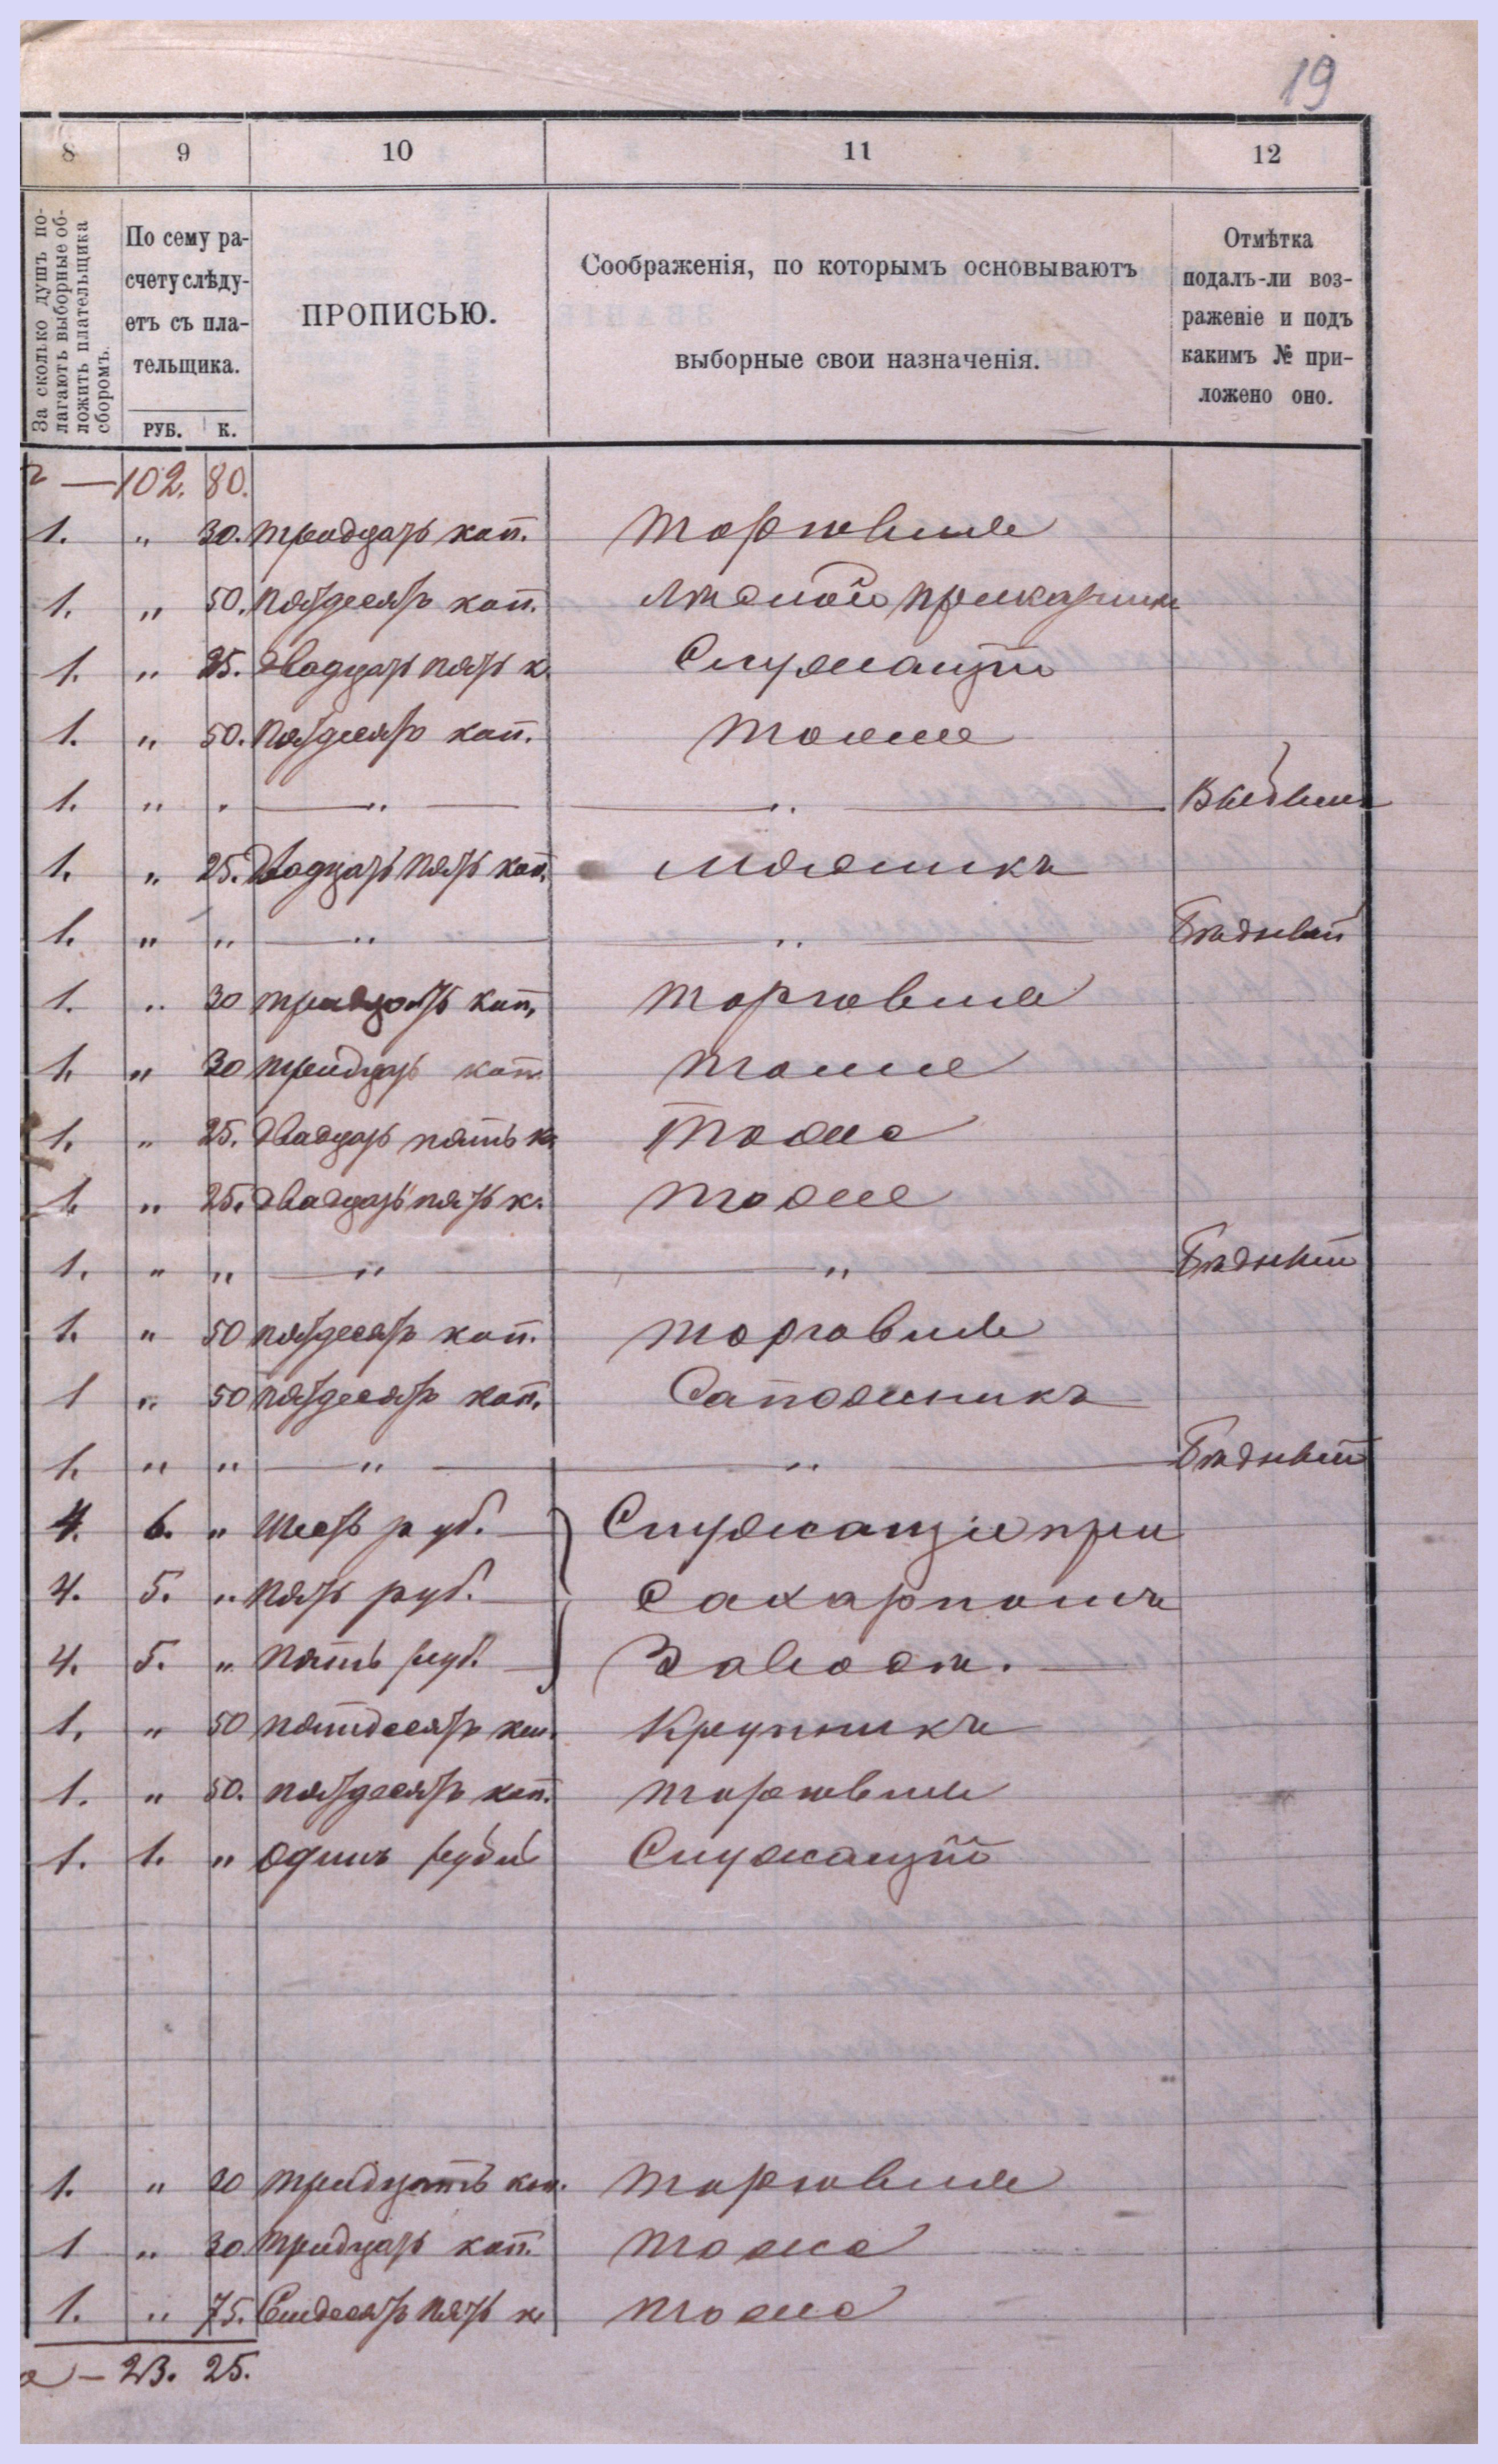 19
8 9 10 11 12
За сколько душъ по-
лагаютъ выборные об-
ложить плательщика
сборомъ.
По сему ра-
счету слѣду-
етъ съ пла-
тельщика.
РУБ. К.
ПРОПИСЬЮ.
Соображенія, по которымъ основываютъ
выборные свои назначенія.
Отмѣтка
подалъ-ли воз-
раженіе и подъ
какимъ № при-
ложено оно.
— 102. 80.
1. " 30. тридцать коп. торговля
1. " 50. пятдесятъ коп. прикащикъ
1. " 25. двадцать пять к. Служащій
1. " 50. пятдесятъ коп. тоже
1. " " — " — — " — Выбылъ
1. " 25. Двадцать пять коп.
1. " " — " — — " — Бѣдный
1. " 30 тридцать коп. торговля
1. " 30 тридцать коп. тоже
1. " 25. двадцать пять к. Тоже
1. " 25. двадцать пять к. тоже
1. " " — " — — " — Бѣдный
1. " 50 пятдесятъ коп. торговля
1 " 50 пятдесятъ коп. Сапожникъ
1. " " — " — — " — Бѣдный
4. 6. " шесть руб. — Служащіе при
4. 5. " пять руб. — Сахарномъ
4. 5. " пять руб. — Заводѣ. —
1. " 50 пятьдесятъ коп. Крупникъ
1. " 50. пятдесятъ коп. торговля
1. 1. " одинъ рубль Служащій
1. " 30 тридцать коп. торговля
1 " 30. тридцать коп. тоже
1. " 75. Семдесятъ пять к тоже
— 23. 25.